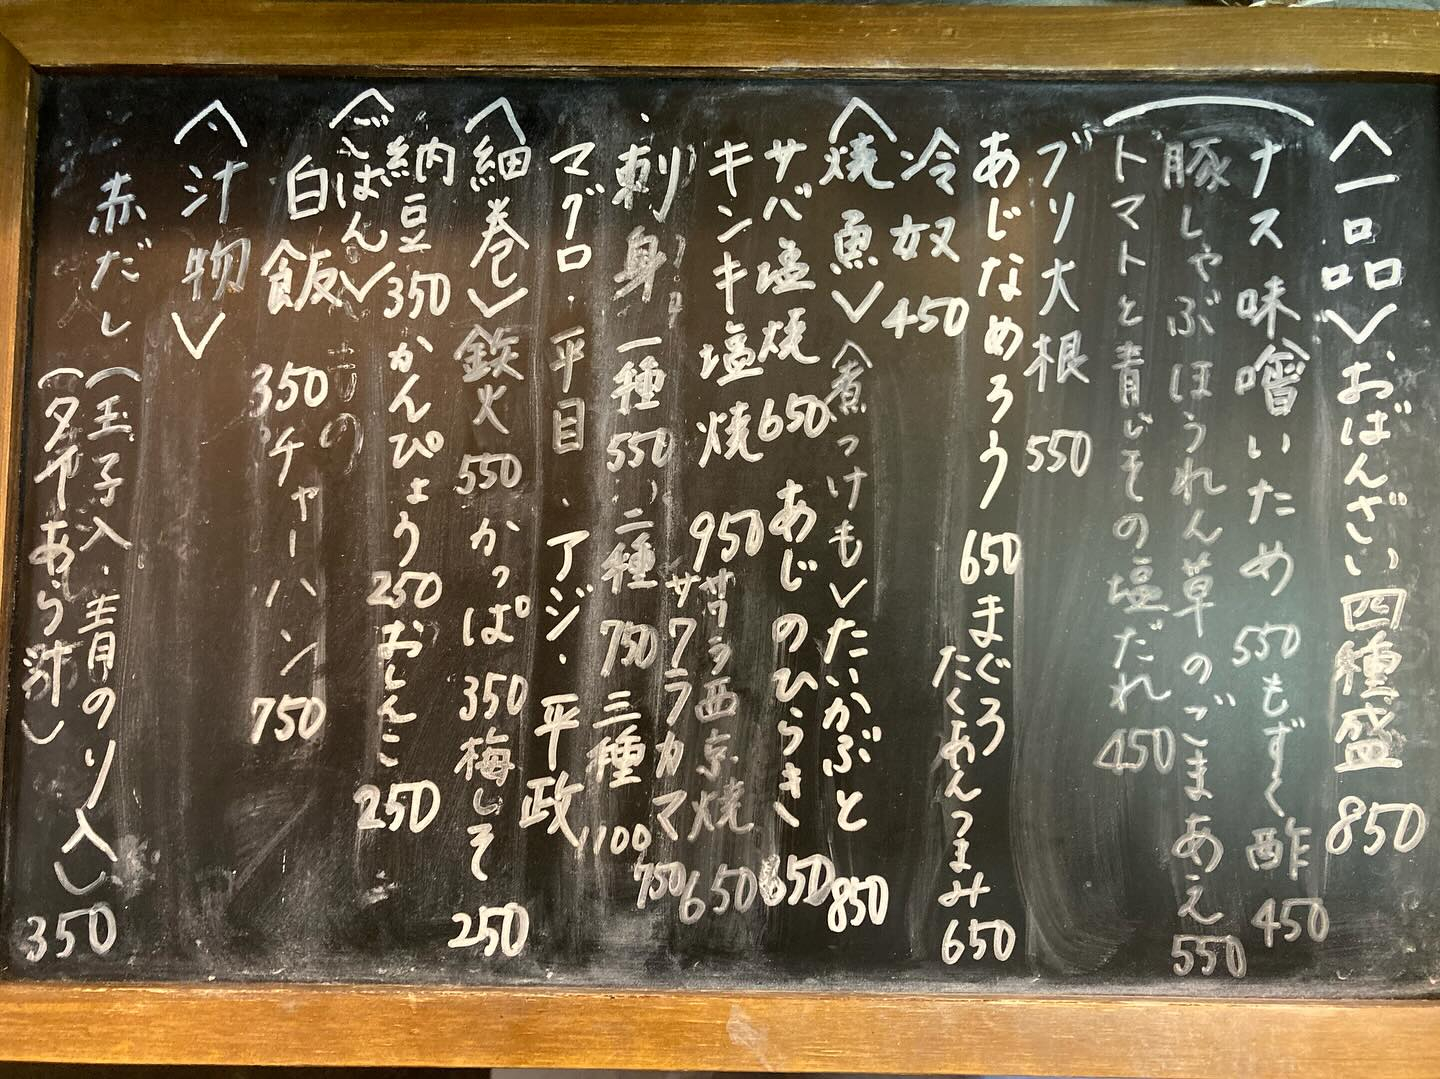 〈一品〉おばんざい四種盛 850
ナス味噌いため 550 もずく酢 450
豚しゃぶほうれん草のごまあえ 550
トマトと青じその塩だれ 450
ブリ大根 550
あじなめろう 650 まぐろたくあんつまみ 650
冷奴 450
〈焼魚〉〈煮つけも〉たいかぶと 850
サバ塩焼 650 あじのひらき 650
キンキ塩焼 950 サワラ西京焼 650
サワラカマ 750
刺身 一種 550 二種 750 三種 1100
マグロ・平目・アジ・平政
〈細巻〉鉄火 550 かっぱ 350 梅しそ 250
納豆 350 かんぴょう 250 おしんこ 250
〈ごはん〉
白飯 350 チャーハン 750
〈汁物〉
赤だし(玉子入・青のり入) 350
(タイあら汁)